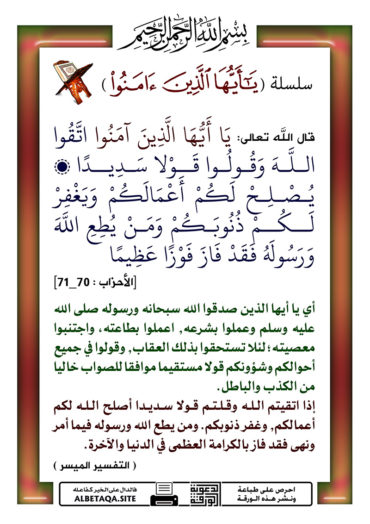 بِسْمِ اللَّهِ الرَّحْمَٰنِ الرَّحِيمِ
سلسلة ﴿يَـٰٓأَيُّهَا ٱلَّذِينَ ءَامَنُوا۟﴾
قال الله تعالى: يَا أَيُّهَا الَّذِينَ آمَنُوا اتَّقُوا
اللَّهَ وَقُولُوا قَوْلًا سَدِيدًا ۞
يُصْلِحْ لَكُمْ أَعْمَالَكُمْ وَيَغْفِرْ
لَكُمْ ذُنُوبَكُمْ وَمَنْ يُطِعِ اللَّهَ
وَرَسُولَهُ فَقَدْ فَازَ فَوْزًا عَظِيمًا
[الأحزاب : 70_71]
أي يا أيها الذين صدقوا الله سبحانه ورسوله صلى الله
عليه وسلم وعملوا بشرعه, اعملوا بطاعته، واجتنبوا
معصيته ؛ لئلا تستحقوا بذلك العقاب, وقولوا في جميع
أحوالكم وشؤونكم قولا مستقيما موافقا للصواب خاليا
من الكذب والباطل.
إذا اتقيتم الله وقلتم قولا سديدا أصلح الله لكم
أعمالكم, وغفر ذنوبكم. ومن يطع الله ورسوله فيما أمر
ونهى فقد فاز بالكرامة العظمى في الدنيا والآخرة.
( التفسير الميسر )
احرص على طباعة
ونشر هذه الورقة
الدعوية
الورقة
فالدال على الخير كفاعله
ALBETAQA.SITE